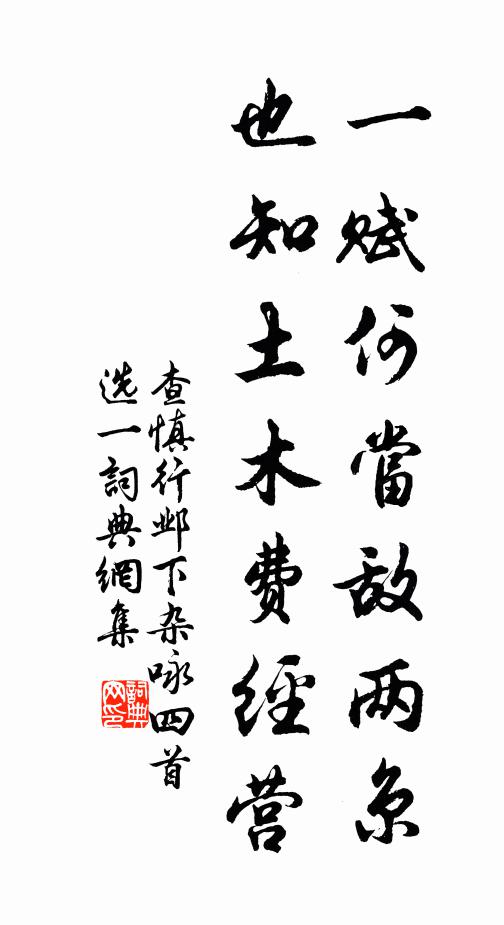 一赋何當敌两京
也知土木费經营
查慎行邺下杂咏四首
选一詞典網集
詞典
网印